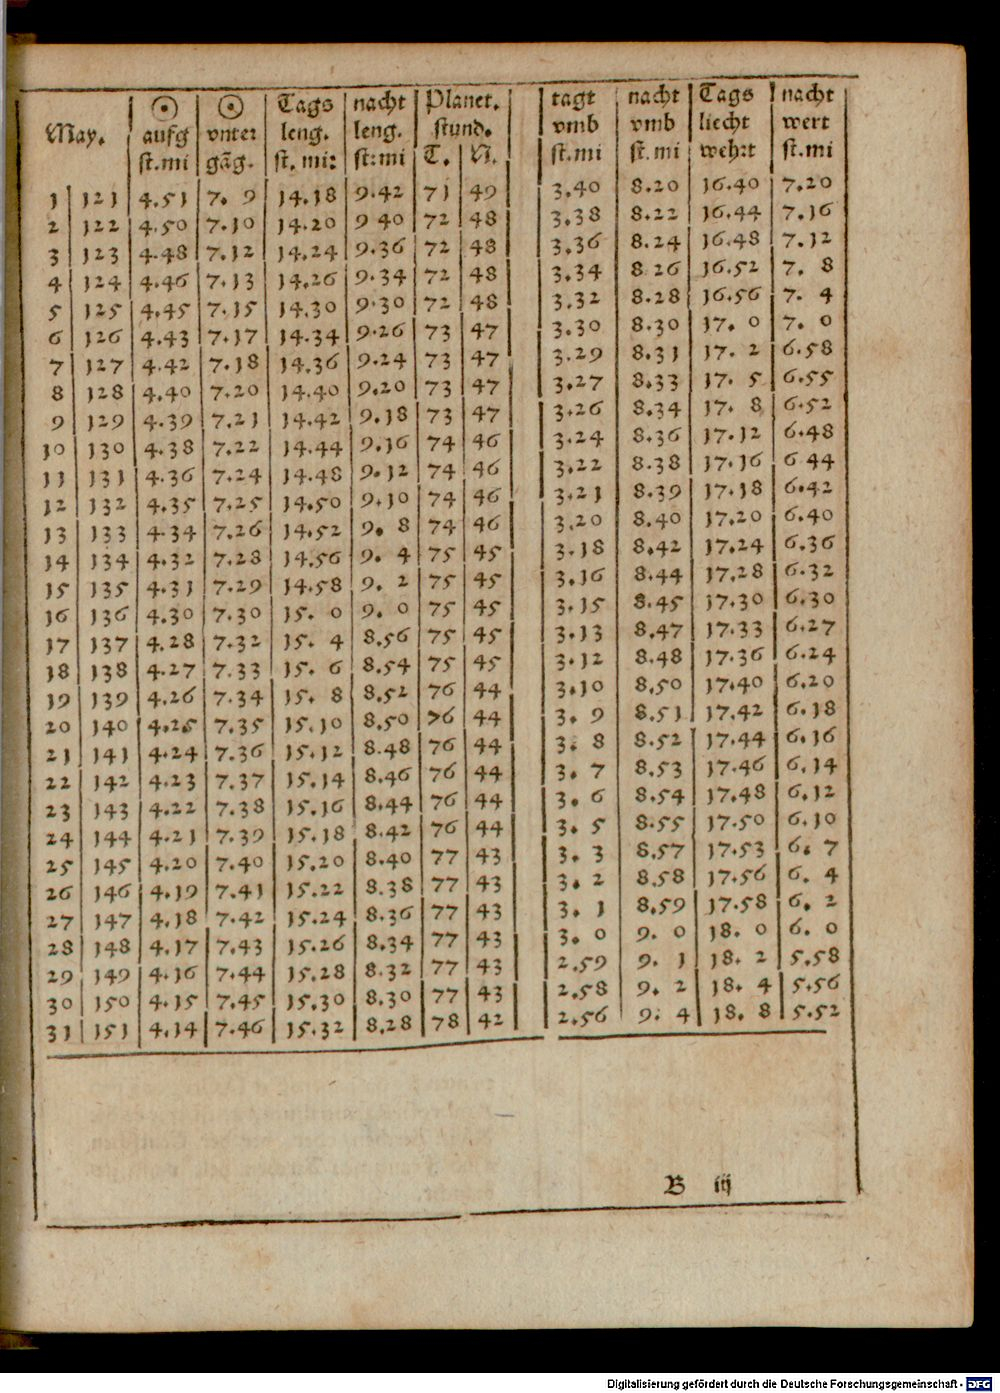 May. ☉ ☉ Tags nacht Planet. tagt nacht Tags nacht
aufg vnter leng. leng. stund. vmb vmb liecht wert
st.mi gãg. st. mi: st:mi T. N. st.mi st.mi wehrt st.mi
1 121 4.51 7. 9 14.18 9.42 71 49 3.40 8.20 16.40 7.20
2 122 4.50 7.10 14.20 9 40 72 48 3.38 8.22 16.44 7.16
3 123 4.48 7.12 14.24 9.36 72 48 3.36 8.24 16.48 7.12
4 124 4.46 7.13 14.26 9.34 72 48 3.34 8 26 16.52 7. 8
5 125 4.45 7.15 14.30 9.30 72 48 3.32 8.28 16.56 7. 4
6 126 4.43 7.17 14.34 9.26 73 47 3.30 8.30 17. 0 7. 0
7 127 4.42 7.18 14.36 9.24 73 47 3.29 8.31 17. 2 6.58
8 128 4.40 7.20 14.40 9.20 73 47 3.27 8.33 17. 5 6.55
9 129 4.39 7.21 14.42 9.18 73 47 3.26 8.34 17. 8 6.52
10 130 4.38 7.22 14.44 9.16 74 46 3.24 8.36 17.12 6.48
11 131 4.36 7.24 14.48 9.12 74 46 3.22 8.38 17.16 6 44
12 132 4.35 7.25 14.50 9.10 74 46 3.21 8.39 17.18 6.42
13 133 4.34 7.26 14.52 9. 8 74 46 3.20 8.40 17.20 6.40
14 134 4.32 7.28 14.56 9. 4 75 45 3.18 8.42 17.24 6.36
15 135 4.31 7.29 14.58 9. 2 75 45 3.16 8.44 17.28 6.32
16 136 4.30 7.30 15. 0 9. 0 75 45 3.15 8.45 17.30 6.30
17 137 4.28 7.32 15. 4 8.56 75 45 3.13 8.47 17.33 6.27
18 138 4.27 7.33 15. 6 8.54 75 45 3.12 8.48 17.36 6.24
19 139 4.26 7.34 15. 8 8.52 76 44 3.10 8.50 17.40 6.20
20 140 4.25 7.35 15.10 8.50 76 44 3. 9 8.51 17.42 6.18
21 141 4.24 7.36 15.12 8.48 76 44 3. 8 8.52 17.44 6.16
22 142 4.23 7.37 15.14 8.46 76 44 3. 7 8.53 17.46 6.14
23 143 4.22 7.38 15.16 8.44 76 44 3. 6 8.54 17.48 6.12
24 144 4.21 7.39 15.18 8.42 76 44 3. 5 8.55 17.50 6.10
25 145 4.20 7.40 15.20 8.40 77 43 3. 3 8.57 17.53 6. 7
26 146 4.19 7.41 15.22 8.38 77 43 3. 2 8.58 17.56 6. 4
27 147 4.18 7.42 15.24 8.36 77 43 3. 1 8.59 17.58 6. 2
28 148 4.17 7.43 15.26 8.34 77 43 3. 0 9. 0 18. 0 6. 0
29 149 4.16 7.44 15.28 8.32 77 43 2.59 9. 1 18. 2 5.58
30 150 4.15 7.45 15.30 8.30 77 43 2.58 9. 2 18. 4 5.56
31 151 4.14 7.46 15.32 8.28 78 42 2.56 9. 4 18. 8 5.52
B iij
Digitalisierung gefördert durch die Deutsche Forschungsgemeinschaft - DFG